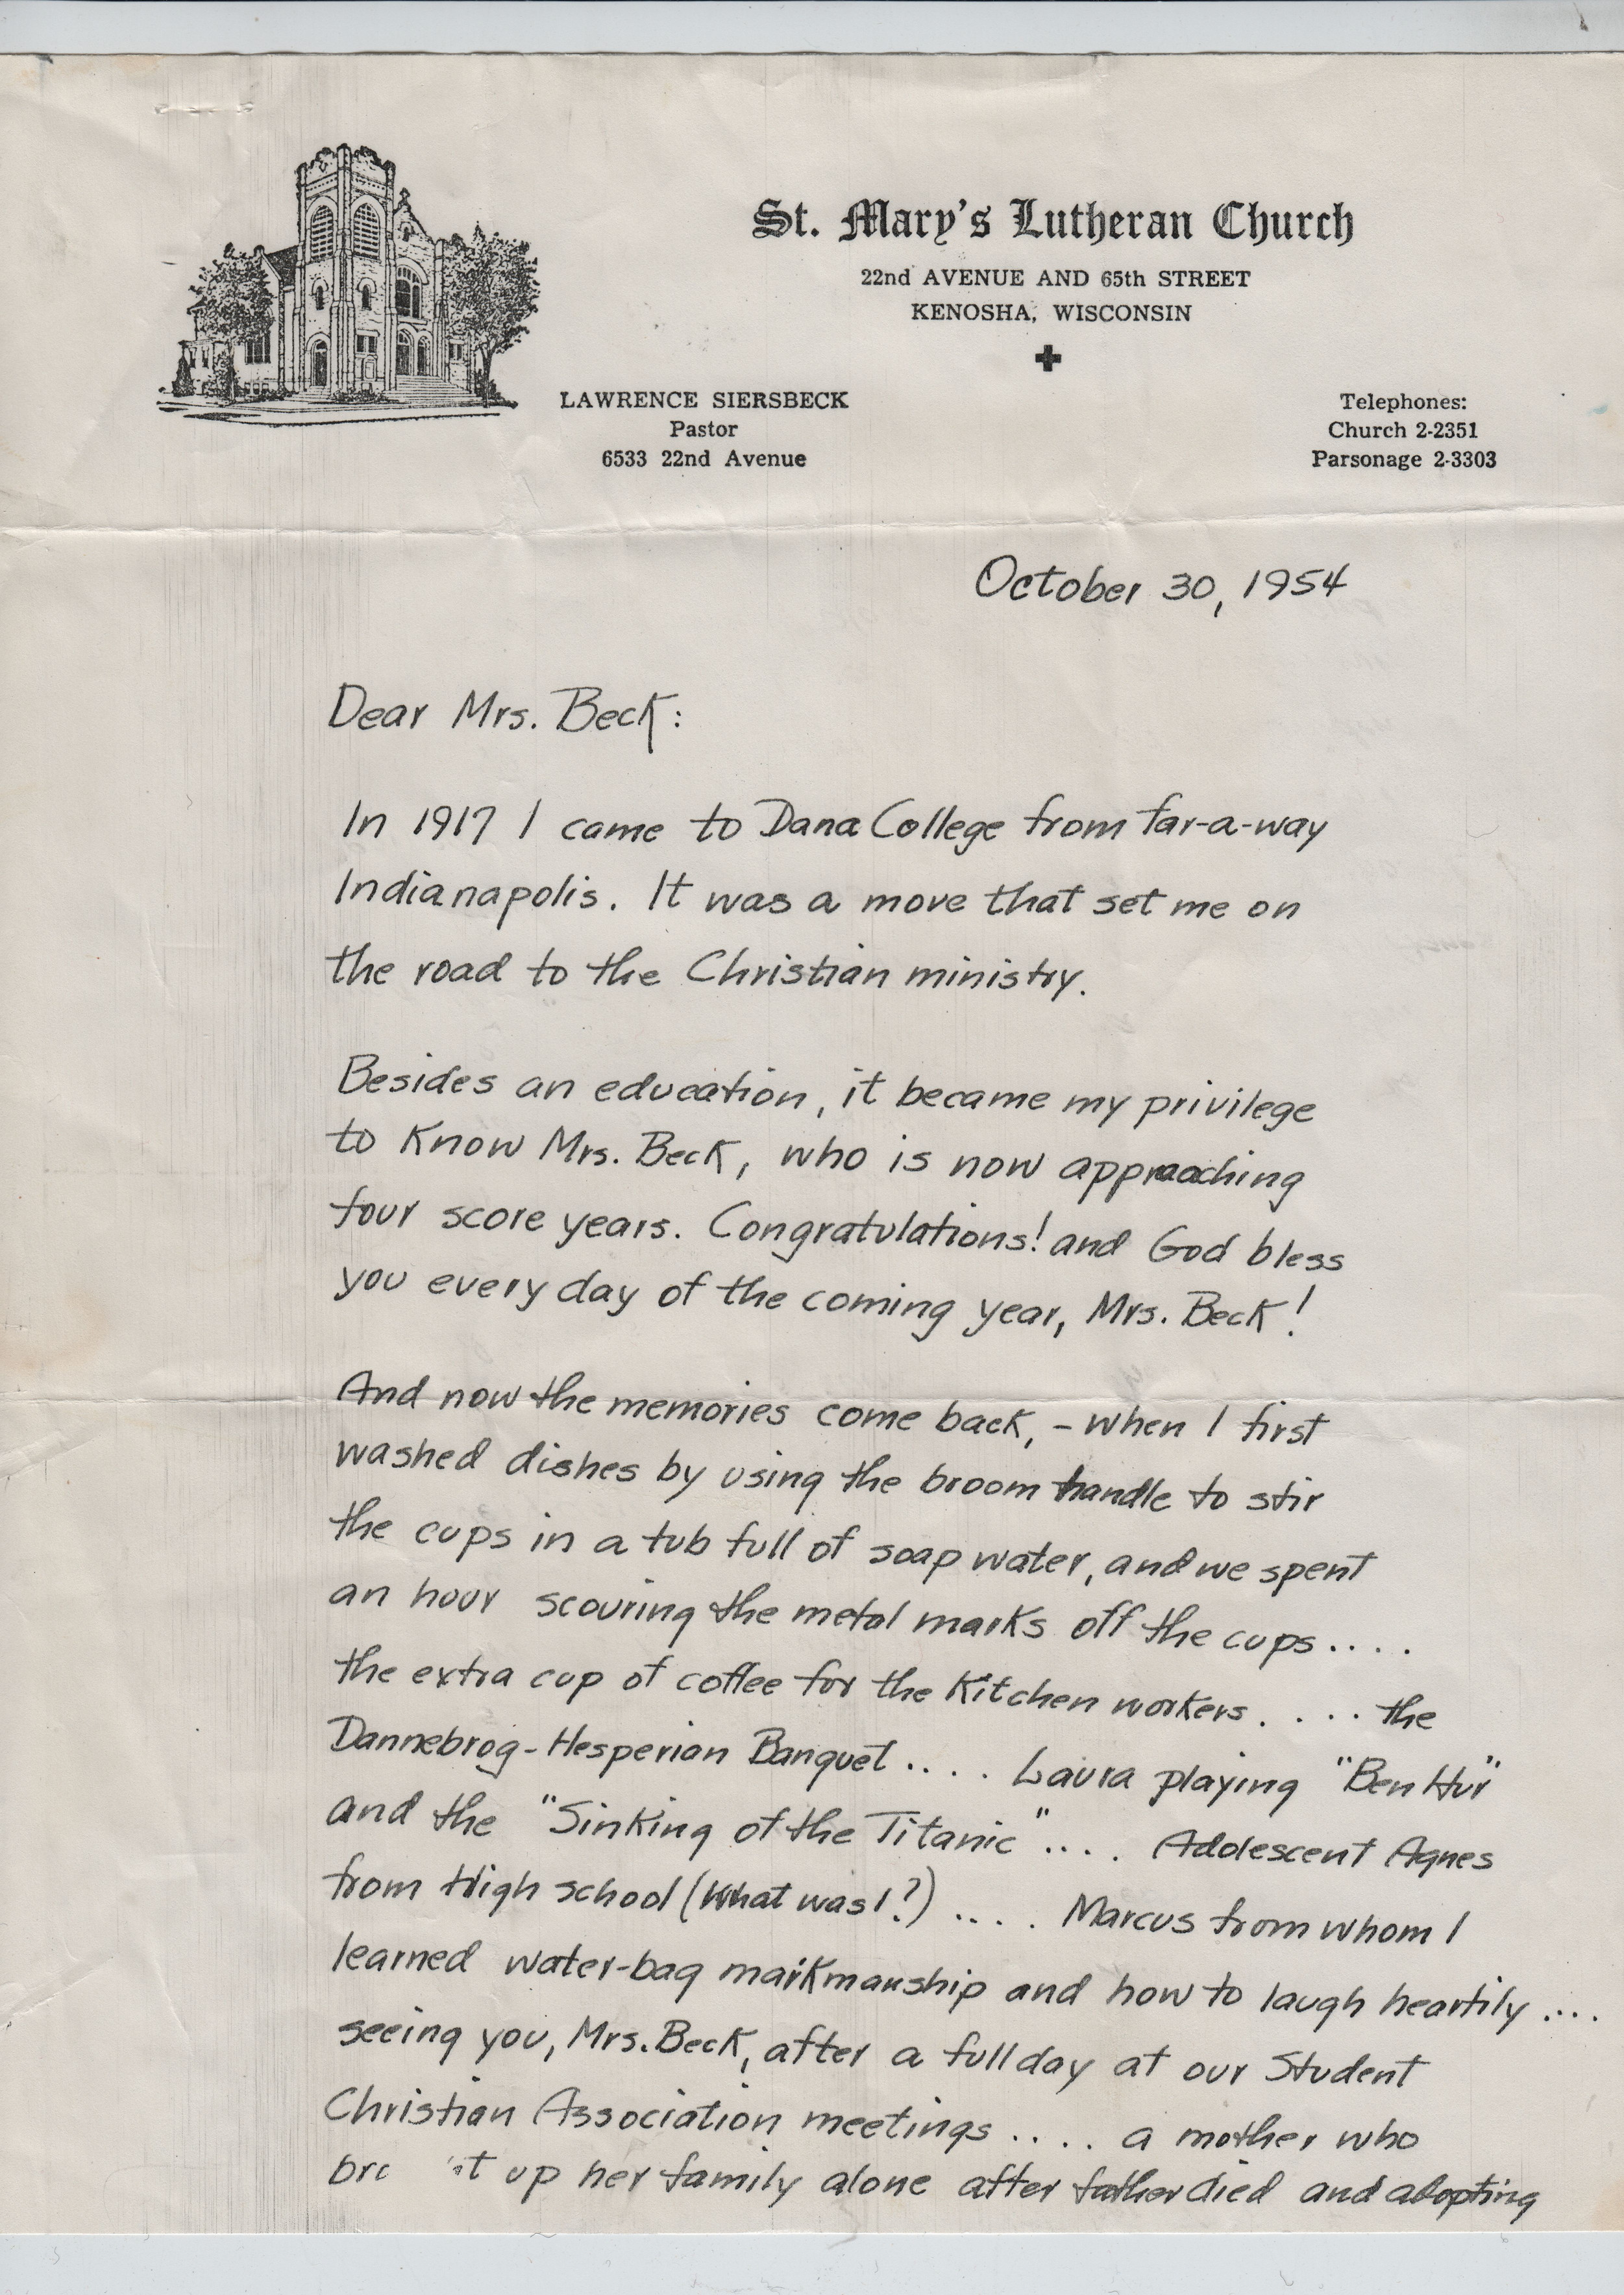 St. Mary's Lutheran Church
22nd AVENUE AND 65th STREET
KENOSHA, WISCONSIN
LAWRENCE SIERSBECK
Pastor
6533 22nd Avenue
Telephones:
Church 2-2351
Parsonage 2-3303
October 30, 1954
Dear Mrs. Beck:
In 1917 I came to Dana College from far-a-way
Indianapolis. It was a move that set me on
the road to the Christian ministry.
Besides an education, it became my privilege
to know Mrs. Beck, who is now approaching
four score years. Congratulations! and God bless
you every day of the coming year, Mrs. Beck!
And now the memories come back, - when I first
washed dishes by using the broom handle to stir
the cups in a tub full of soap water, and we spent
an hour scouring the metal marks off the cups....
the extra cup of coffee for the kitchen workers.... the
Dannebrog-Hesperian Banquet.... Laura playing "Ben Hur"
and the "Sinking of the Titanic".... Adolescent Agnes
from High school (What was I?) .... Marcus from whom I
learned water-bag markmanship and how to laugh heartily ....
seeing you, Mrs. Beck, after a full day at our Student
Christian Association meetings .... a mother who
up her family alone after father died and adopting